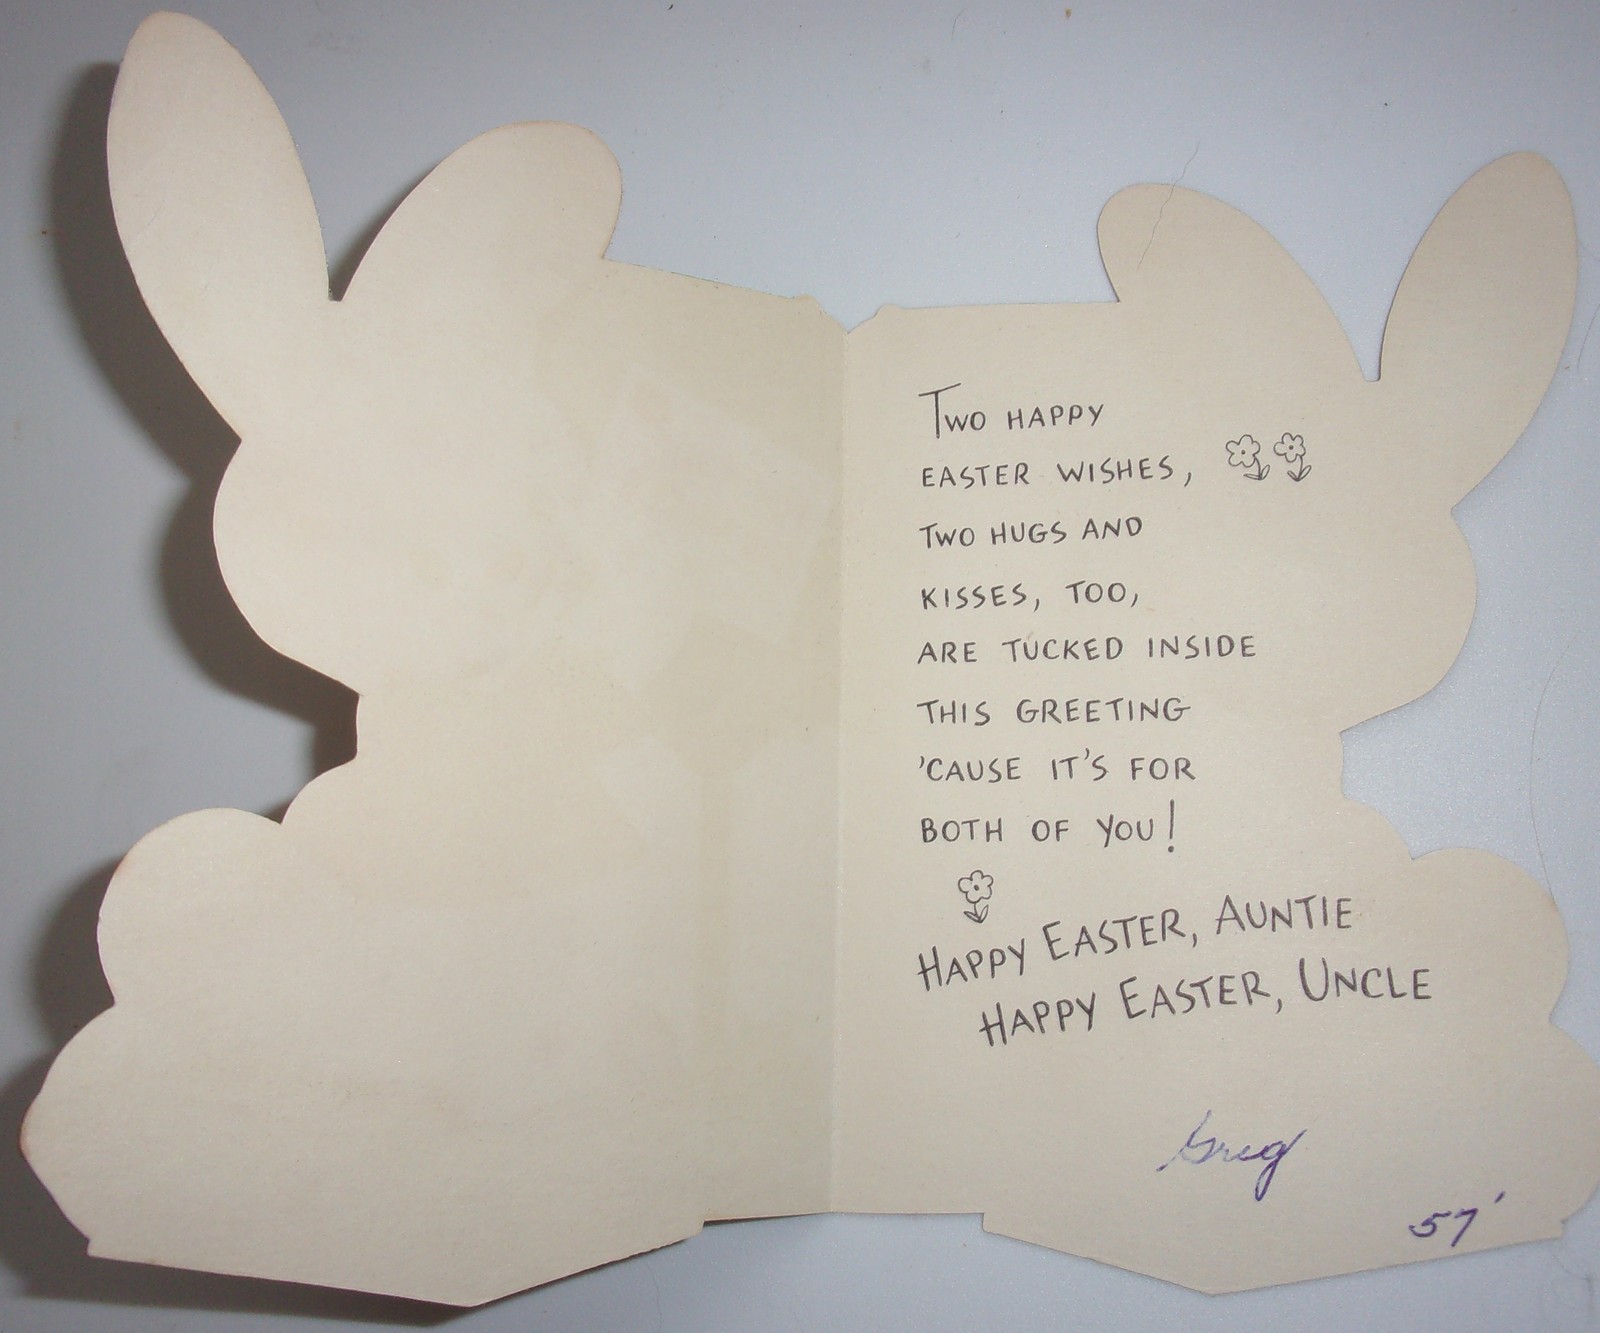 Two HAPPY
EASTER WISHES,
TWO HUGS AND
KISSES, TOO,
ARE TUCKED INSIDE
THIS GREETING
'CAUSE IT'S FOR
BOTH OF YOU!
HAPPY EASTER, AUNTIE
HAPPY EASTER, UNCLE
Greg
57'